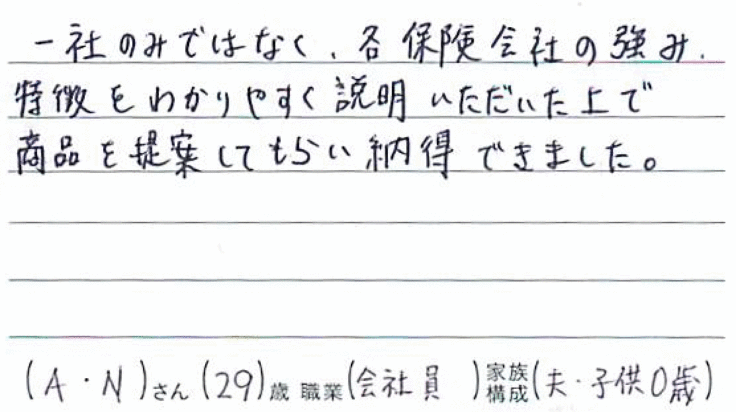 一社のみではなく、各保険会社の強み、
特徴をわかりやすく説明いただいた上で
商品を提案してもらい納得できました。
(A・N)さん(29)歳 職業(会社員 )家族構成(夫・子供0歳)